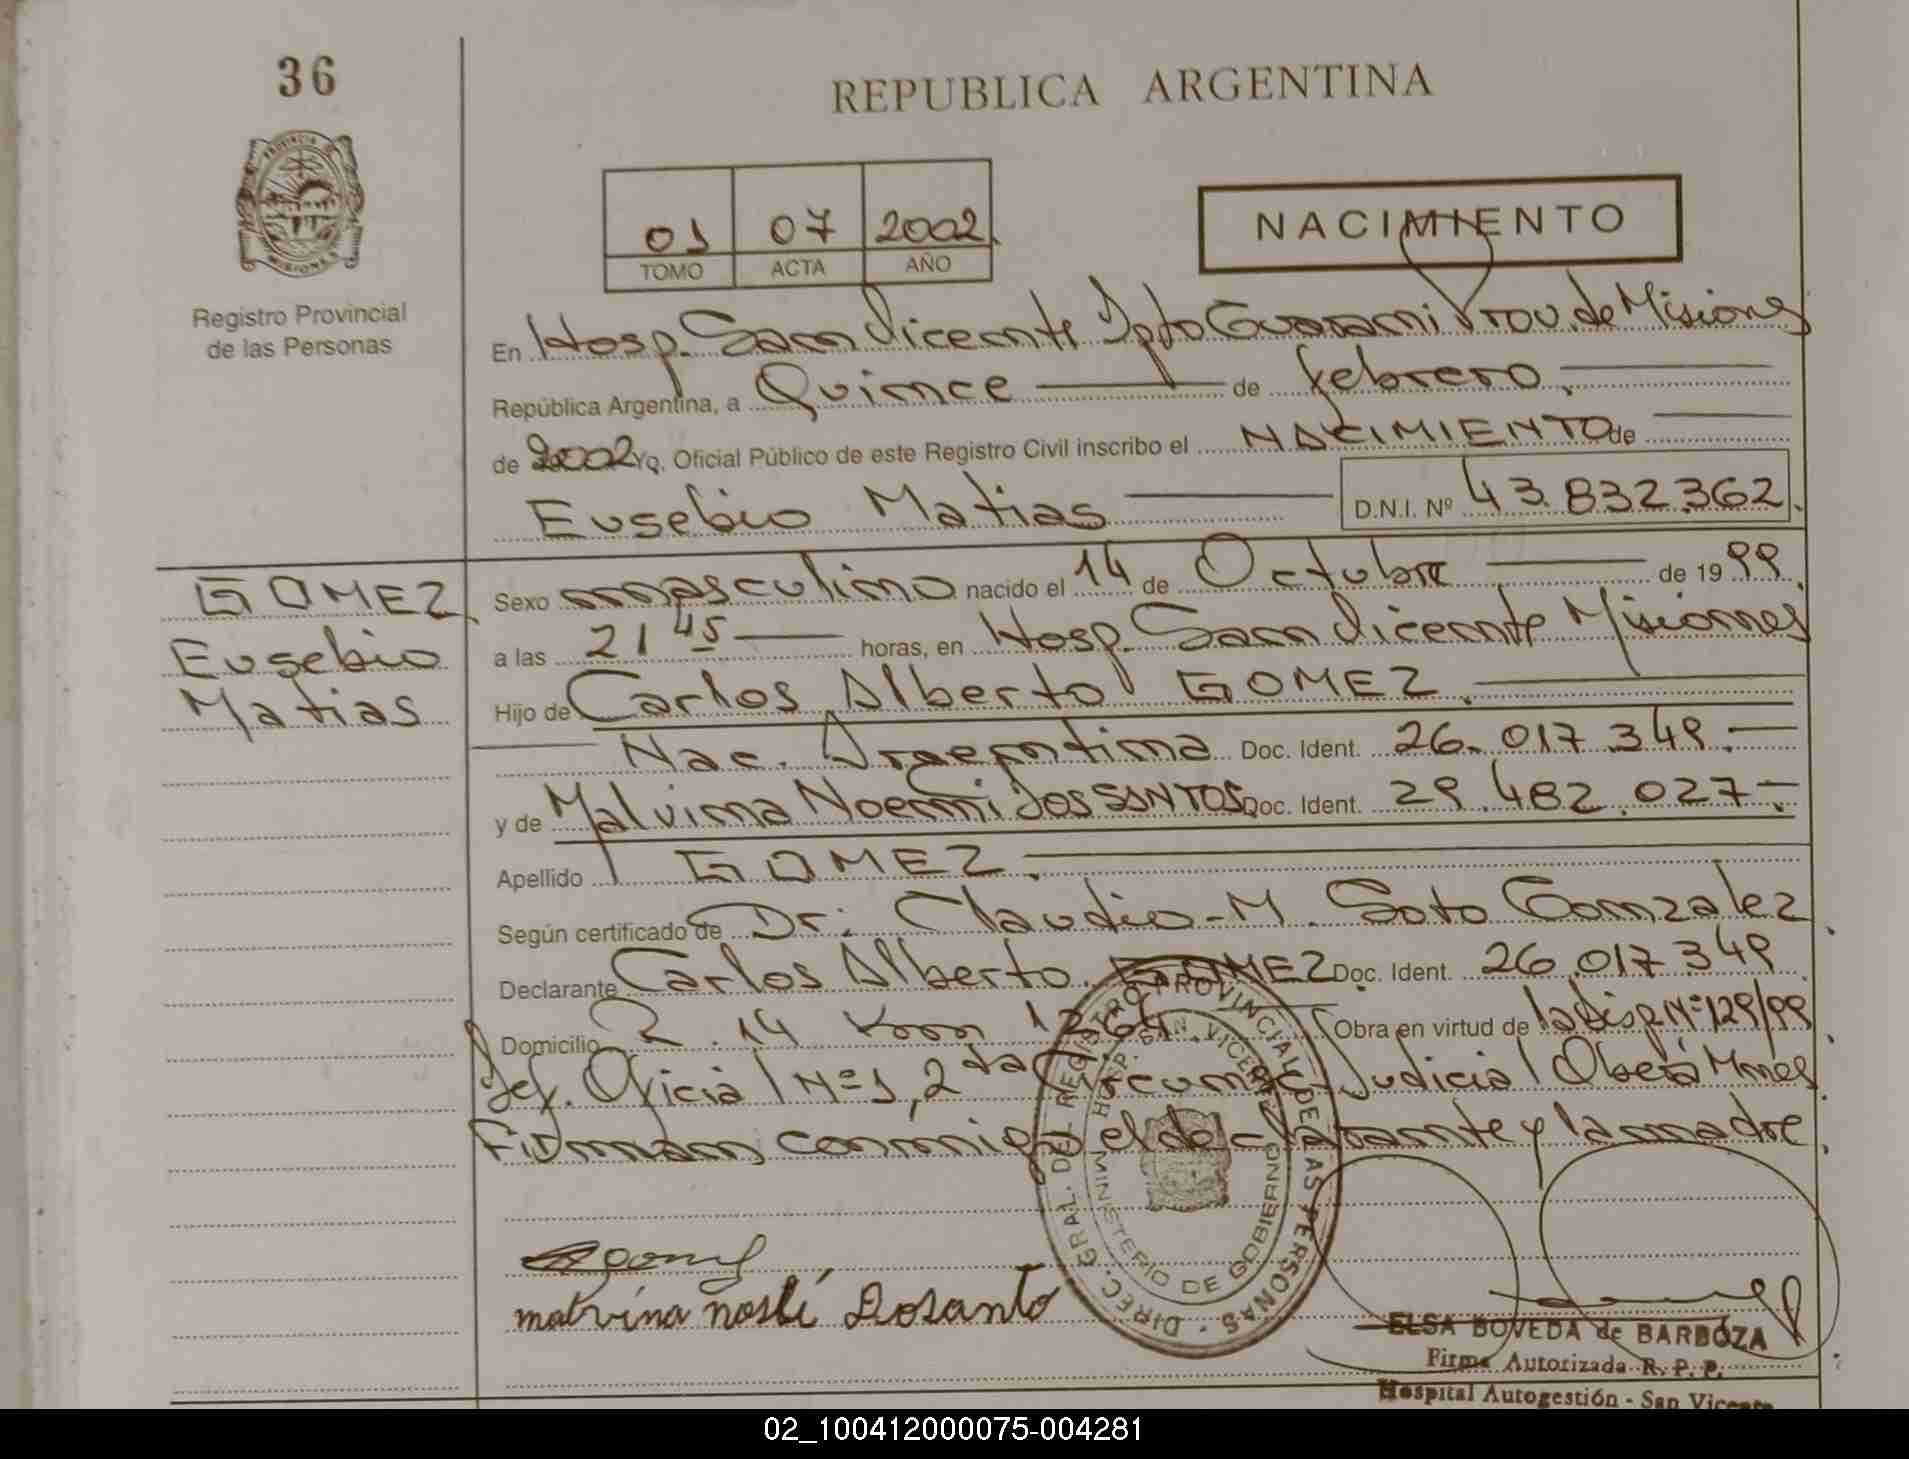 36
REPUBLICA ARGENTINA
PROVINCIA DE
MISIONES
Registro Provincial
de las Personas
01 07 2002
TOMO ACTA AÑO
NACIMIENTO
En Hosp. San Vicente Dpto Guarani Prov. de Misiones
República Argentina, a Quince de febrero.
de 2002 Yo, Oficial Público de este Registro Civil inscribo el NACIMIENTO de
Eusebio Matias D.N.I. Nº 43.832.362.
GOMEZ
Eusebio
Matias
Sexo masculino nacido el 14 de Octubre de 1999
a las 21 45 horas, en Hosp. San Vicente Misiones
Hijo de Carlos Alberto GOMEZ.
Nac. Argentina Doc. Ident. 26.017.349.-
y de Malvina Noemi Dos SANTOS Doc. Ident. 29.482.027-.
Apellido GOMEZ.
Según certificado de Dr: Claudio-M. Soto Gonzalez.
Declarante Carlos Alberto GOMEZ Doc. Ident. 26.017.349
Domicilio R. 14 Km 1264 Obra en virtud de la Disp Nº 129/99
Def. Oficial Nº 1, 2da Circunc. Judicial Oberá Mnes
Firman conmigo el declarante y la madre.
DIREC. GRAL. DEL REGISTRO PROVINCIAL DE LAS PERSONAS
HOSP. SAN VICENTE
MINISTERIO DE GOBIERNO
malvina Dosanto
ELSA BOVEDA de BARBOZA
Firma Autorizada R. P. P.
Hospital Autogestión - San Vicente
02_100412000075-004281